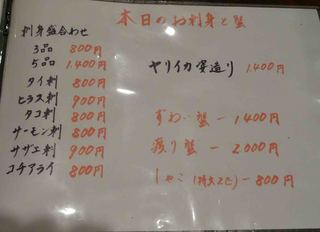 本日のお刺身と蟹
刺身盛合わせ
3品 800円
5品 1.400円
タイ刺 800円
ヒラス刺 900円
タコ刺 800円
サーモン刺 800円
サザエ刺 900円
コチアライ 800円
ヤリイカ姿造り 1.400円
ずわい蟹 — 1400円
渡り蟹 — 2.000円
しゃこ(特大2匹) — 800円